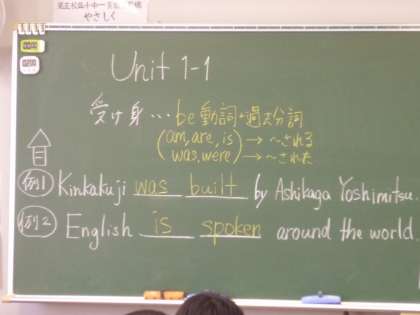 やさしく
Unit 1-1
受け身… be動詞+過去分詞
(am, are, is) → ~される
(was, were) → ~された
目
例1 Kinkakuji was built by Ashikaga Yoshimitsu.
例2 English is spoken around the world